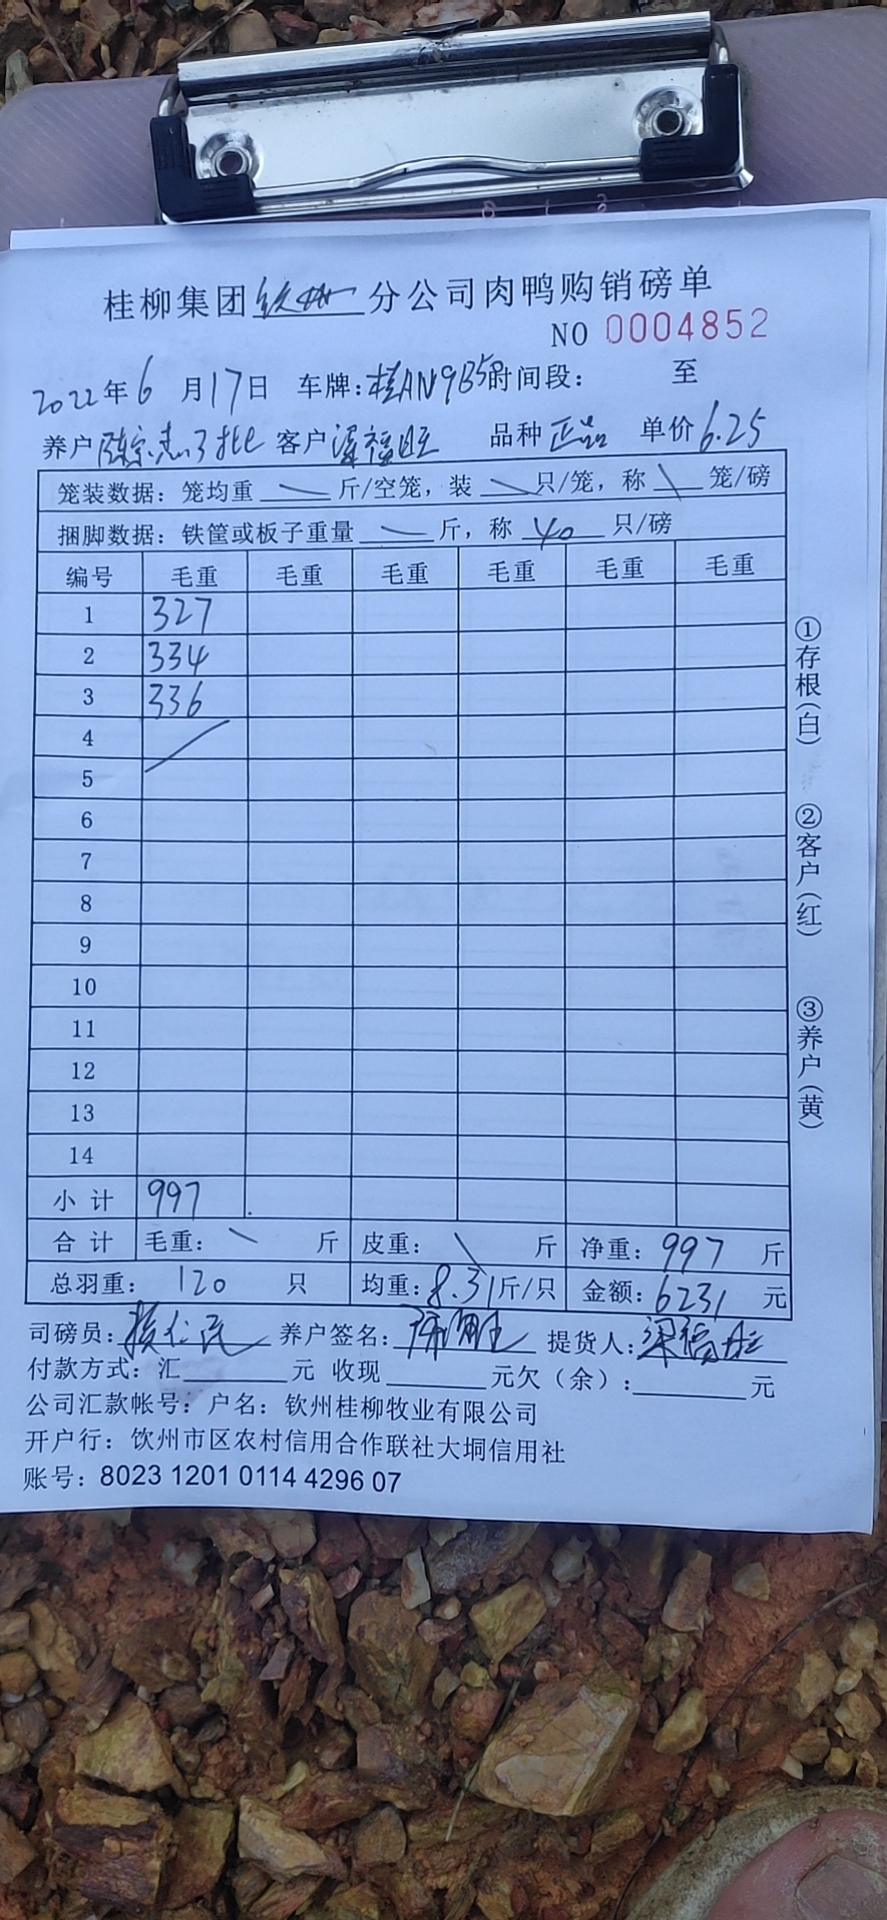 桂柳集团钦州分公司肉鸭购销磅单
NO 0004852
2022年6月17日 车牌:桂AN9B5 时间段: 至
养户 陈宗志 3批 客户 梁福旺 品种 正品 单价 6.25
笼装数据: 笼均重 斤/空笼, 装 只/笼, 称 笼/磅
捆脚数据: 铁筐或板子重量 斤, 称 40 只/磅
编号 毛重 毛重 毛重 毛重 毛重 毛重
1 327
2 334
3 336
4
5
6
7
8
9
10
11
12
13
14
小计 997
合计 毛重: 斤 皮重: 斤 净重: 997 斤
总羽重: 120 只 均重: 8.31斤/只 金额: 6231 元
司磅员: 养户签名: 提货人: 梁福旺
付款方式: 汇 元 收现 元欠(余): 元
公司汇款帐号: 户名: 钦州桂柳牧业有限公司
开户行: 饮州市区农村信用合作联社大垌信用社
账号: 8023 1201 0114 4296 07
①存根(白) ②客户(红) ③养户(黄)